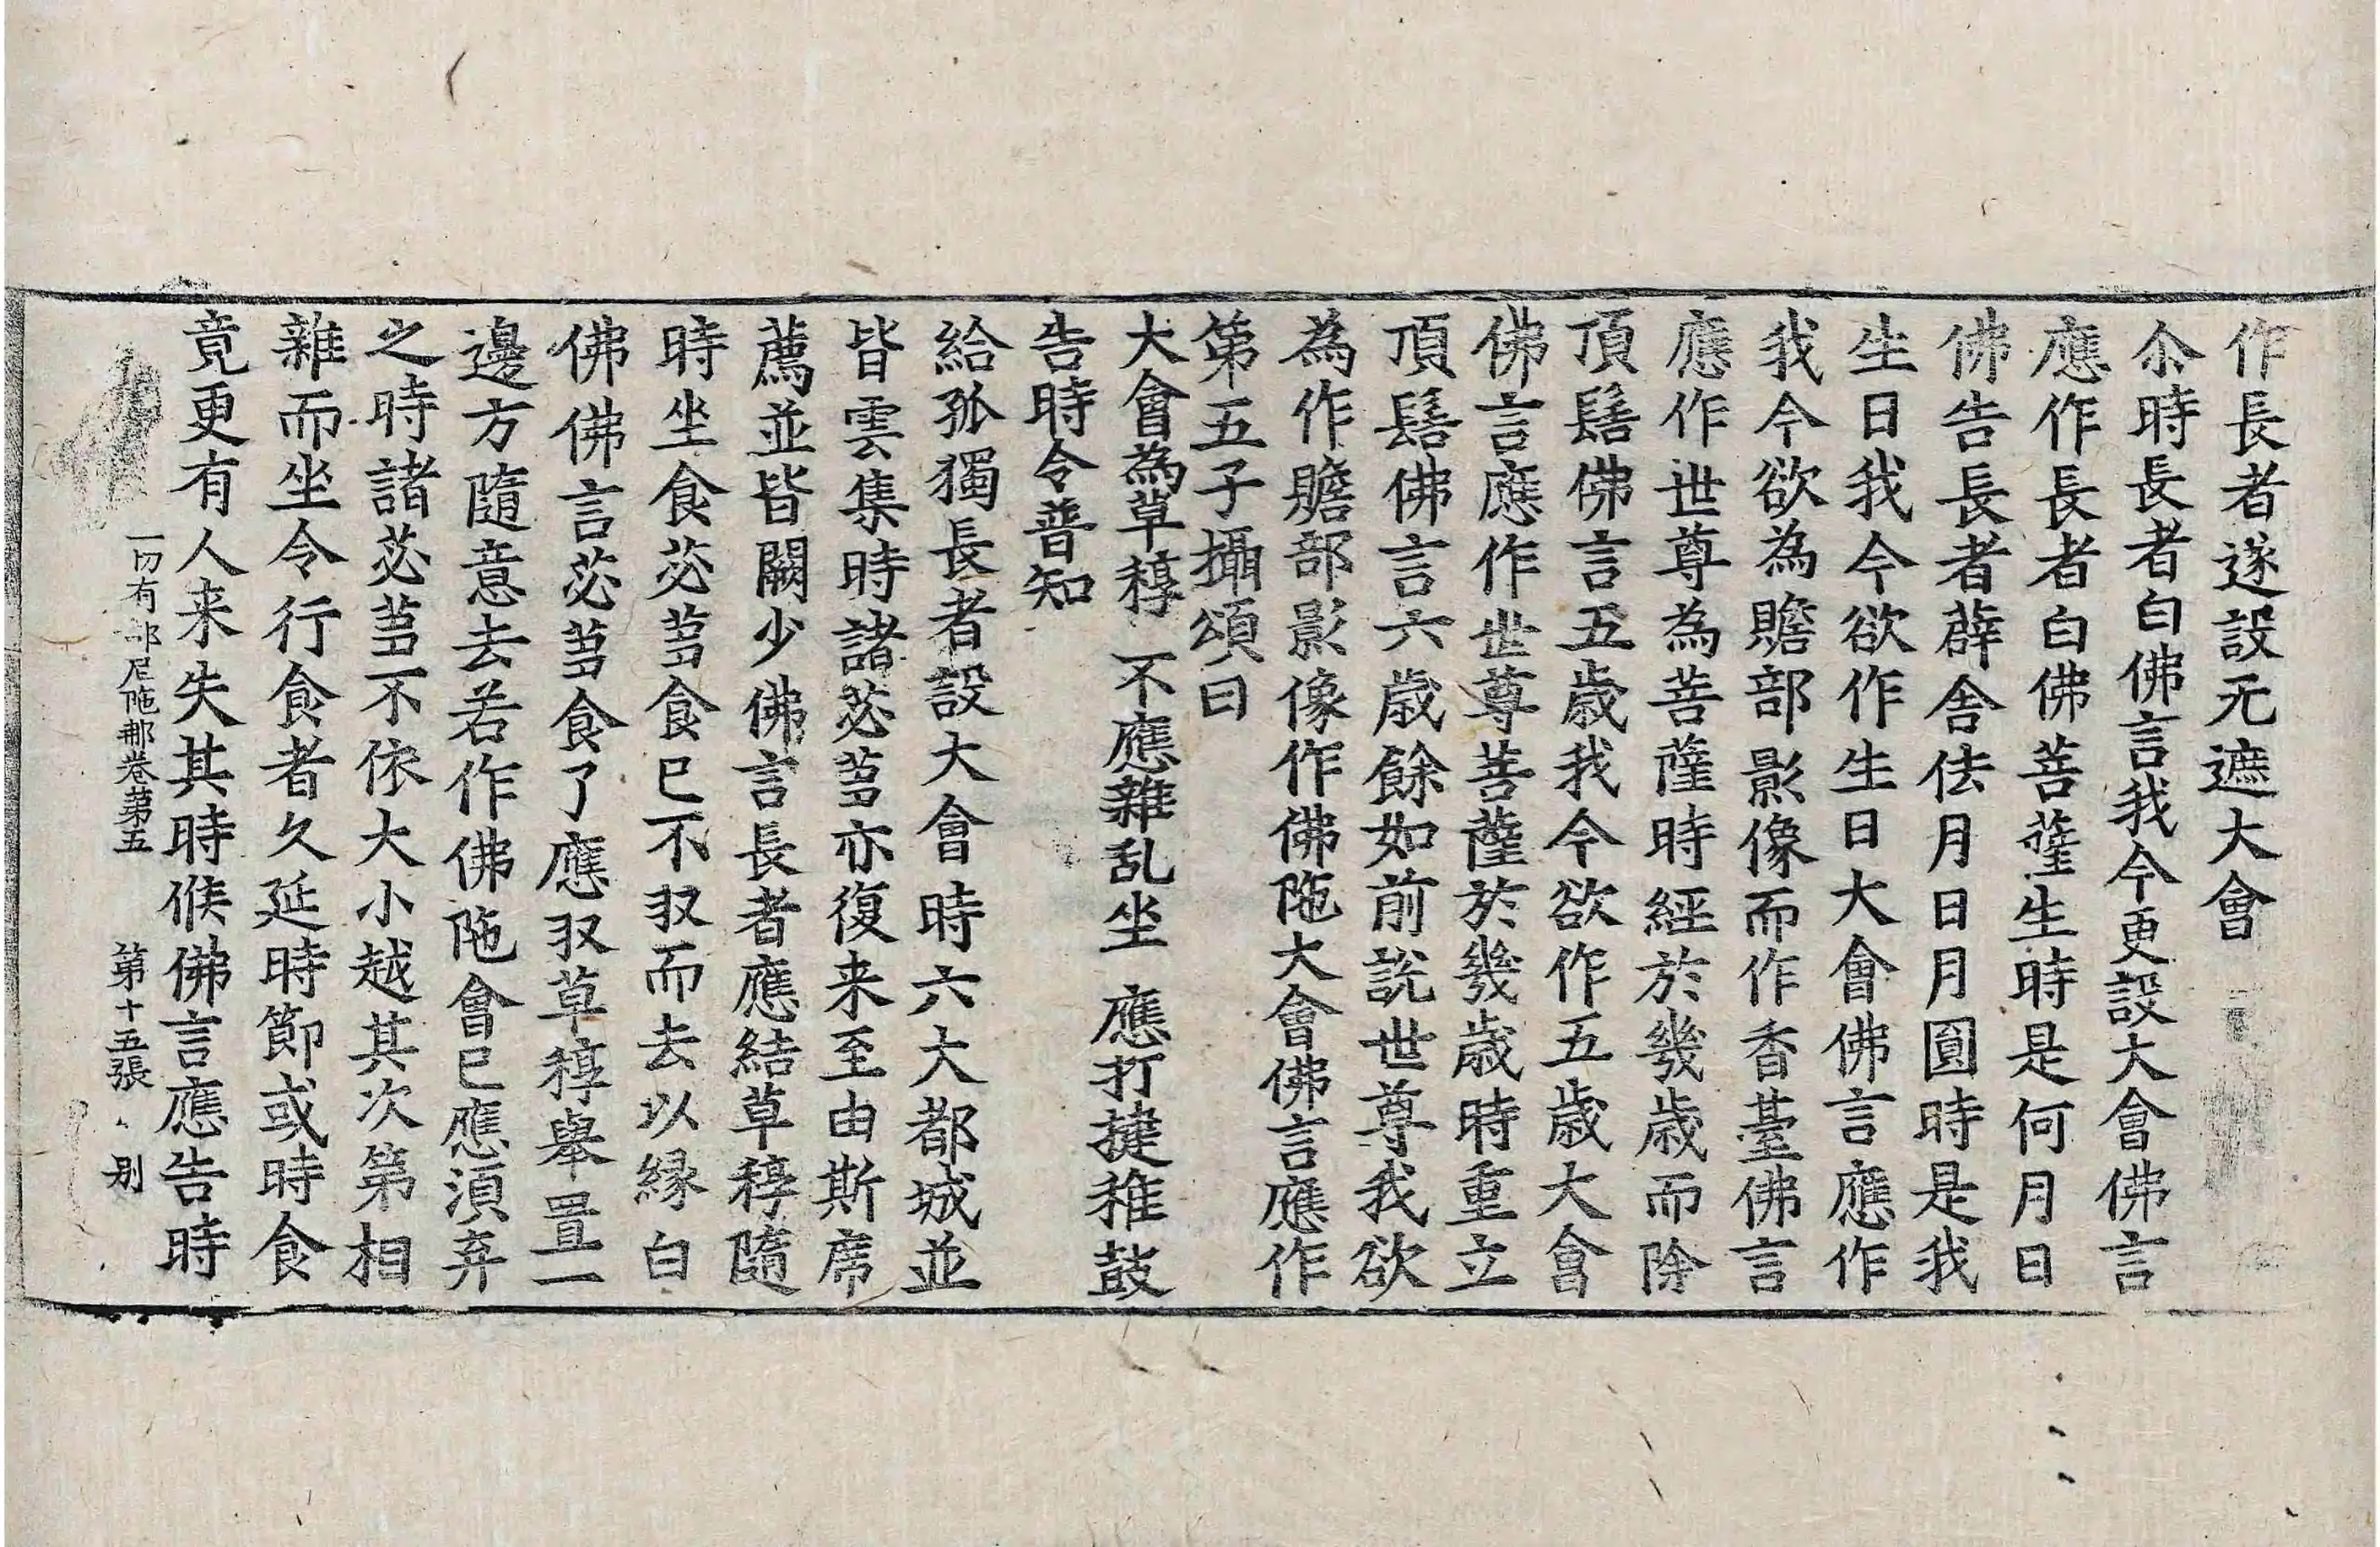 作長者遂設无遮大會
尒時長者白佛言我今更設大會佛言
應作長者白佛菩薩生時是何月日
佛告長者薜舍佉月日月圓時是我
生日我今欲作生日大會佛言應作
我今欲為贍部影像而作香臺佛言
應作世尊為菩薩時經於幾歲而除
頂髻佛言五歲我今欲作五歲大會
佛言應作世尊菩薩於幾歲時重立
頂髻佛言六歲餘如前說世尊我欲
為作贍部影像作佛陁大會佛言應作
第五子攝頌曰
大會為草稕 不應雜乱坐 應打揵稚鼓
告時令普知
給孤獨長者設大會時六大都城並
皆雲集時諸苾芻亦復来至由斯席
薦並皆闕少佛言長者應結草稕隨
時坐食苾芻食已不収而去以緣白
佛佛言苾芻食了應収草稕舉置一
邊方隨意去若作佛陁會已應湏弃
之時諸苾芻不依大小越其次第相
雜而坐令行食者久延時節或時食
竟更有人来失其時候佛言應告時
一切有部尼陁那卷第五 第十五張 别